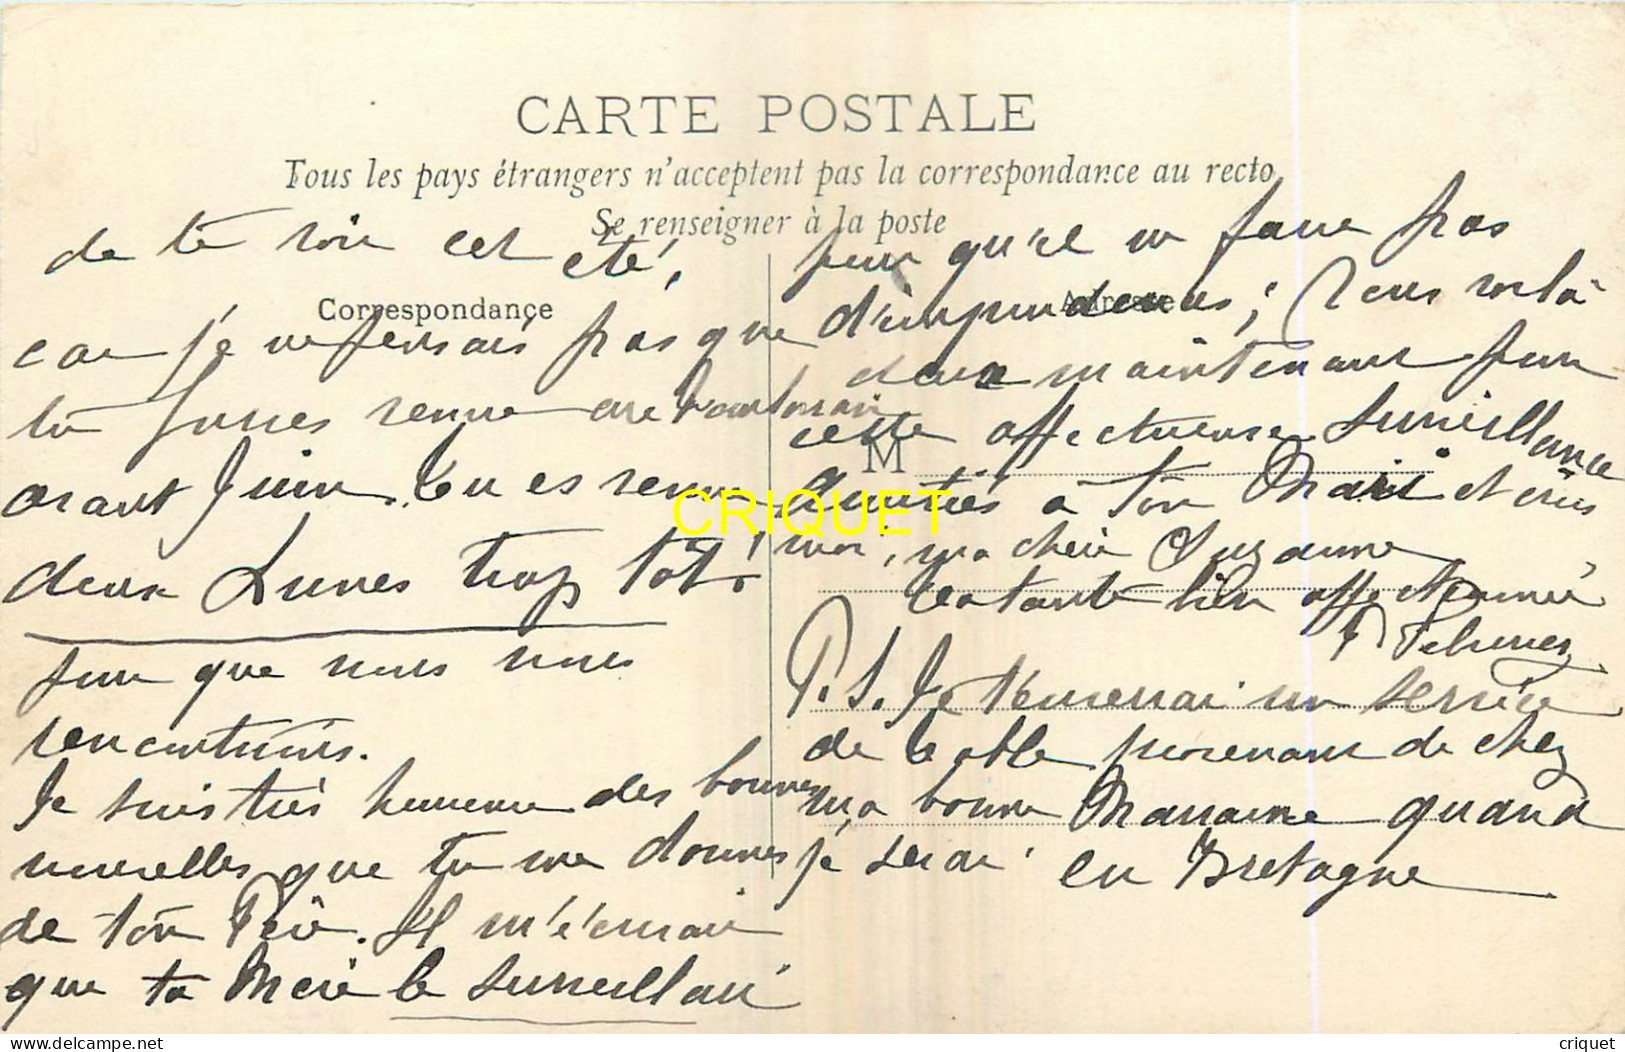 CARTE POSTALE
Tous les pays étrangers n'acceptent pas la correspondance au recto
Se renseigner à la poste
Correspondance
Adresse
M
de te voir cet été,
car je ne pensais pas que
tu fusses venue
avant Juin. Tu es venue
deux Lunes trop tôt!
pour que nous nous
rencontrions.
Je suis très heureux des bonnes
nouvelles que tu me donnes
de ton Père. Il m'écrivait
que ta Mère le surveillait
pour qu'il ne fasse pas
d'imprudences; Vous voilà
deux maintenant pour
cette affectueuse surveillance
Amitiés à ton Mari et crois
moi, ma chère Suzanne
ta tante bien affectionnée
P. S. Je t'enverrai un service
de table provenant de chez
ma bonne Marraine quand
je serai en Bretagne
CRIQUET
delcampe.net
criquet